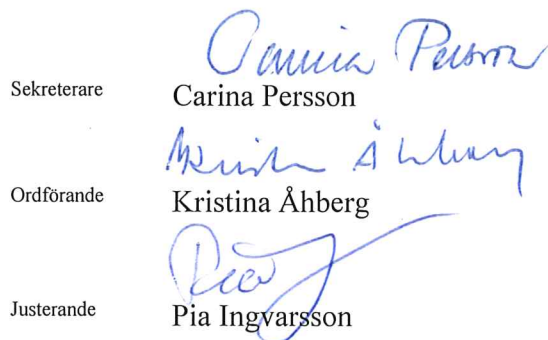 Carina Persson
Sekreterare Carina Persson
Kristina Åhberg
Ordförande Kristina Åhberg
Pia
Justerande Pia Ingvarsson